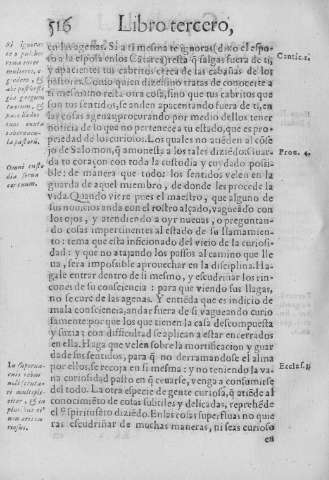 516 Libro tercero,
en las agenas. Si a ti mesma te ignoras (dixo el espo-
so a la esposa en los Cātares) resta q̃ salgas fuera de ti,
y apacientes tus cabritos cerca de las cabañas de los
pastores. Como quien dize: si no tratas de conocerte a
ti mesma, no resta otra cosa, sino que tus cabritos que
son tus sentidos, se anden apacentando fuera de ti, en
las cosas agenas, procurando por medio dellos tener
noticia de lo que no pertenece a tu estado, que es pro-
piedad de los curiosos. Los quales no atiēden al cōse
jo de Salomon, q̃ amonesta a los tales diziēdo: Guar
da tu coraçon con toda la custodia y cuydado possi
ble: de manera que todos los sentidos velen en la
guarda de aquel miembro, de donde les procede la
vida. Quando viere pues el maestro, que alguno de
sus nouicios anda con el rostro alçado, vagueādo con
los ojos, y atendiendo a oyr nueuas, o preguntan-
do cosas impertinentes al estado de su llamamien-
to: tema que esta inficionado del vicio de la curiosi-
dad: y que no atajando los passos al camino que lle
ua, sera impossible aprouechar en la disciplina. Ha-
gale entrar dentro de si mesmo, y escudriñar los rin-
cones de su consciencia: para que viendo sus llagas,
no se cure de las agenas. Y entiēda que es indicio de
mala consciencia, andar fuera de si vagueando curio
samente: por que los que tienen la casa descompuesta
y suzia: con difficultad se aplican a estar encerrados
en ella. Haga que velen sobre la mortificacion y guar
da de sus sentidos, para q̃ no derramandose el alma
por ellos, se recoja en si mesma: y no teniendo la va-
na curiosidad pasto en q̃ ceuarse, venga a consumirse
del todo. La otra especie de gente curiosa, q̃ atiēde al
conocimiēto de cosas subtiles y delicadas, reprehēde
el Spiritu sēto diziēdo. En las cosas superfluas no quie
ras escudriñar de muchas maneras, ni seas curioso
en
Si ignoras
Cantic. 1.
Prou. 4.
Omni custo
dia serua
cor tuum.
Eccles. 3.